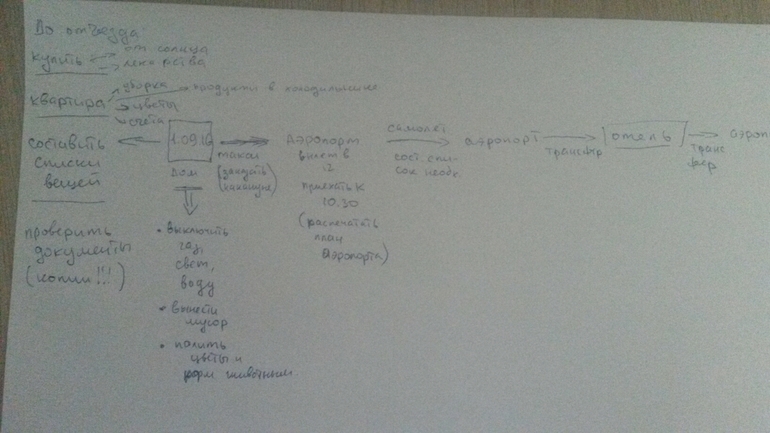 До отъезда
купить
от солнца
лекарства
квартира
уборка
продукты в холодильнике
цветы
счета
составить
списки
вещей
проверить
документы
(копии!!!)
1.09.16
дом
такси
(заказать
накануне)
• выключить
газ,
свет,
воду
• вынести
мусор
• полить
цветы и
корм животным
Аэропорт
вылет в
12
приехать к
10.30
(распечатать
план
аэропорта)
самолет
сост. спи-
сок необх.
аэропорт
трансфер
отель
транс
фер
аэроп